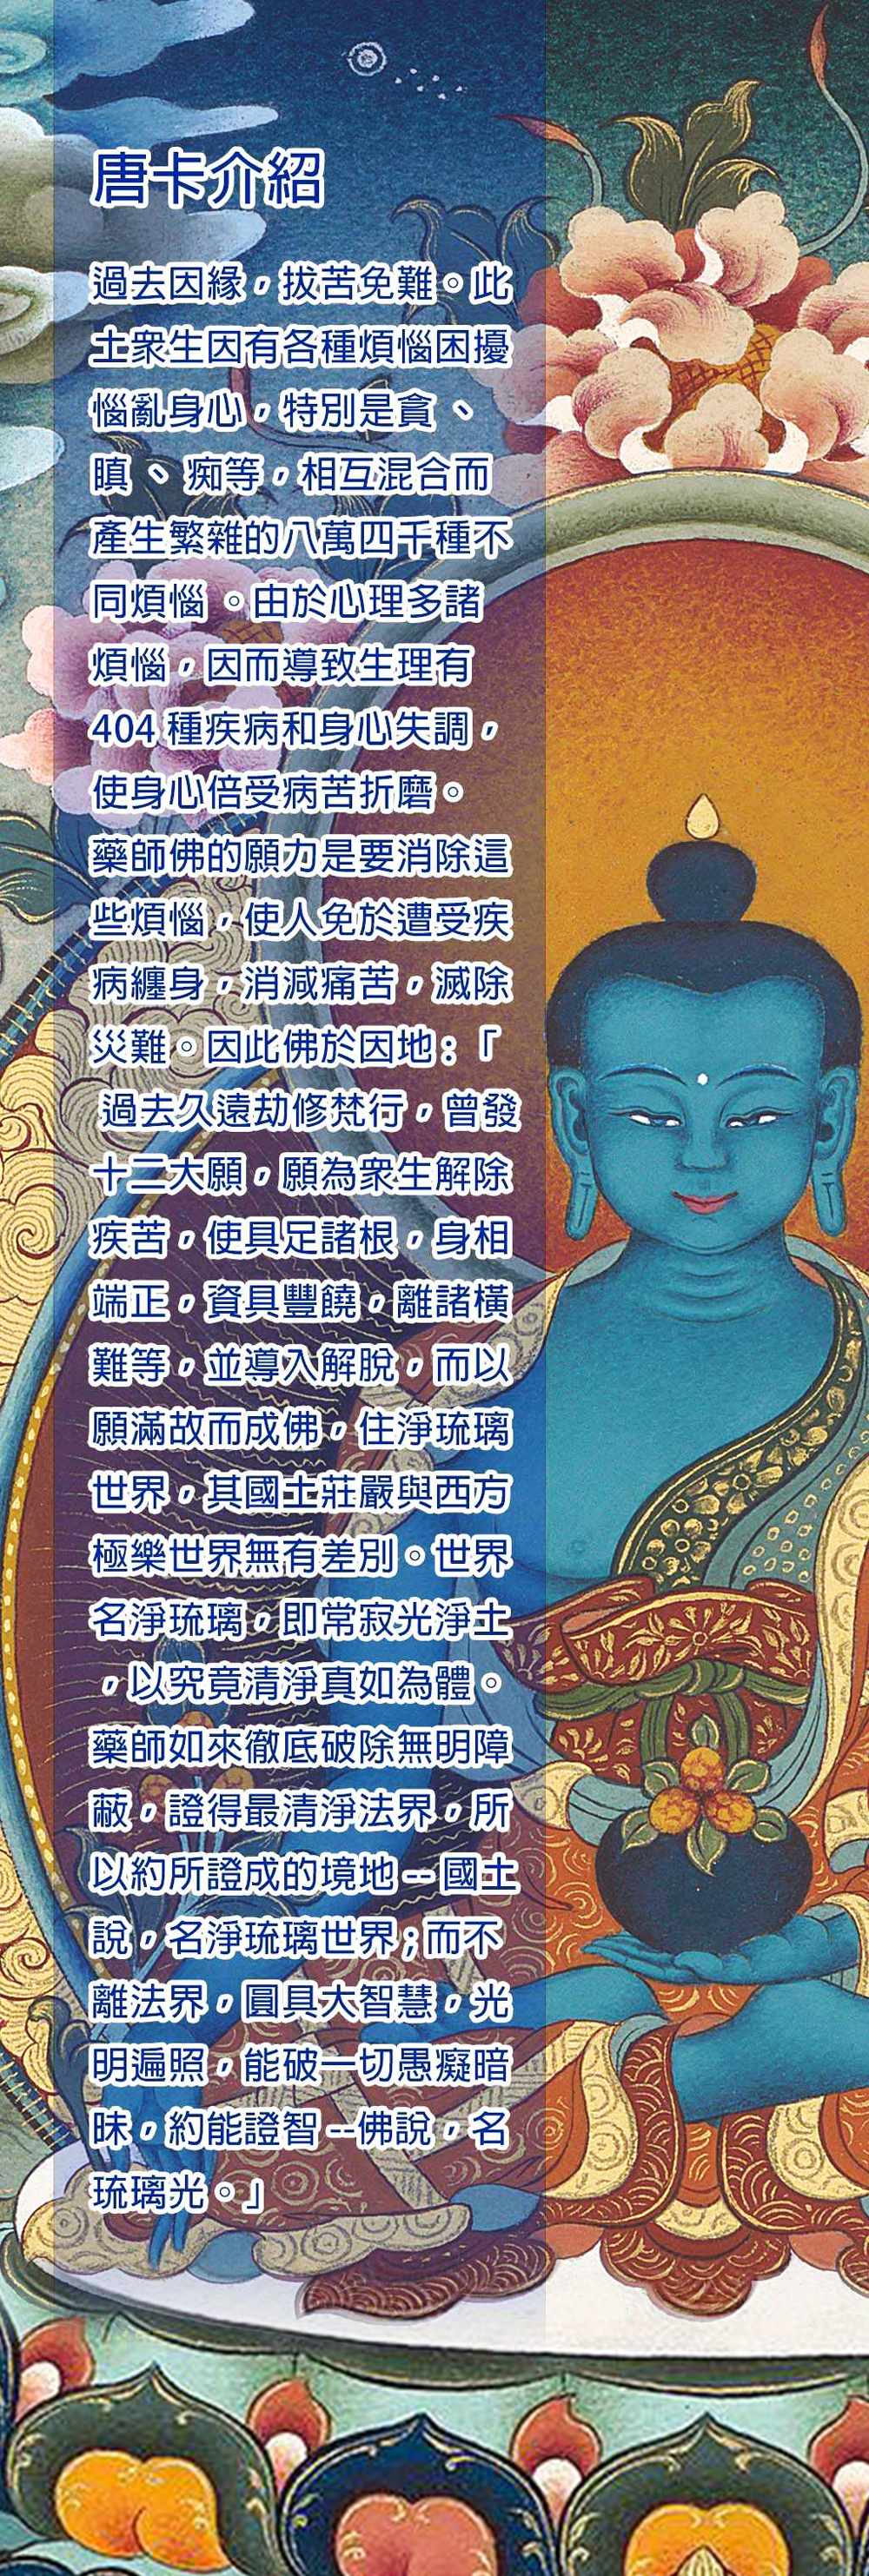 唐卡介紹
過去因緣，拔苦免難。此
土衆生因有各種煩惱困擾
惱亂身心，特別是貪、
瞋、痴等，相互混合而
產生繁雜的八萬四千種不
同煩惱。由於心理多諸
煩惱，因而導致生理有
404 種疾病和身心失調，
使身心倍受病苦折磨。
藥師佛的願力是要消除這
些煩惱，使人免於遭受疾
病纏身，消減痛苦，滅除
災難。因此佛於因地：「
過去久遠劫修梵行，曾發
十二大願，願為衆生解除
疾苦，使具足諸根，身相
端正，資具豐饒，離諸橫
難等，並導入解脫，而以
願滿故而成佛，住淨琉璃
世界，其國土莊嚴與西方
極樂世界無有差別。世界
名淨琉璃，即常寂光淨土
，以究竟清淨真如為體。
藥師如來徹底破除無明障
蔽，證得最清淨法界，所
以約所證成的境地--國土
說，名淨琉璃世界；而不
離法界，圓具大智慧，光
明遍照，能破一切愚癡暗
昧，約能證智--佛說，名
琉璃光。」